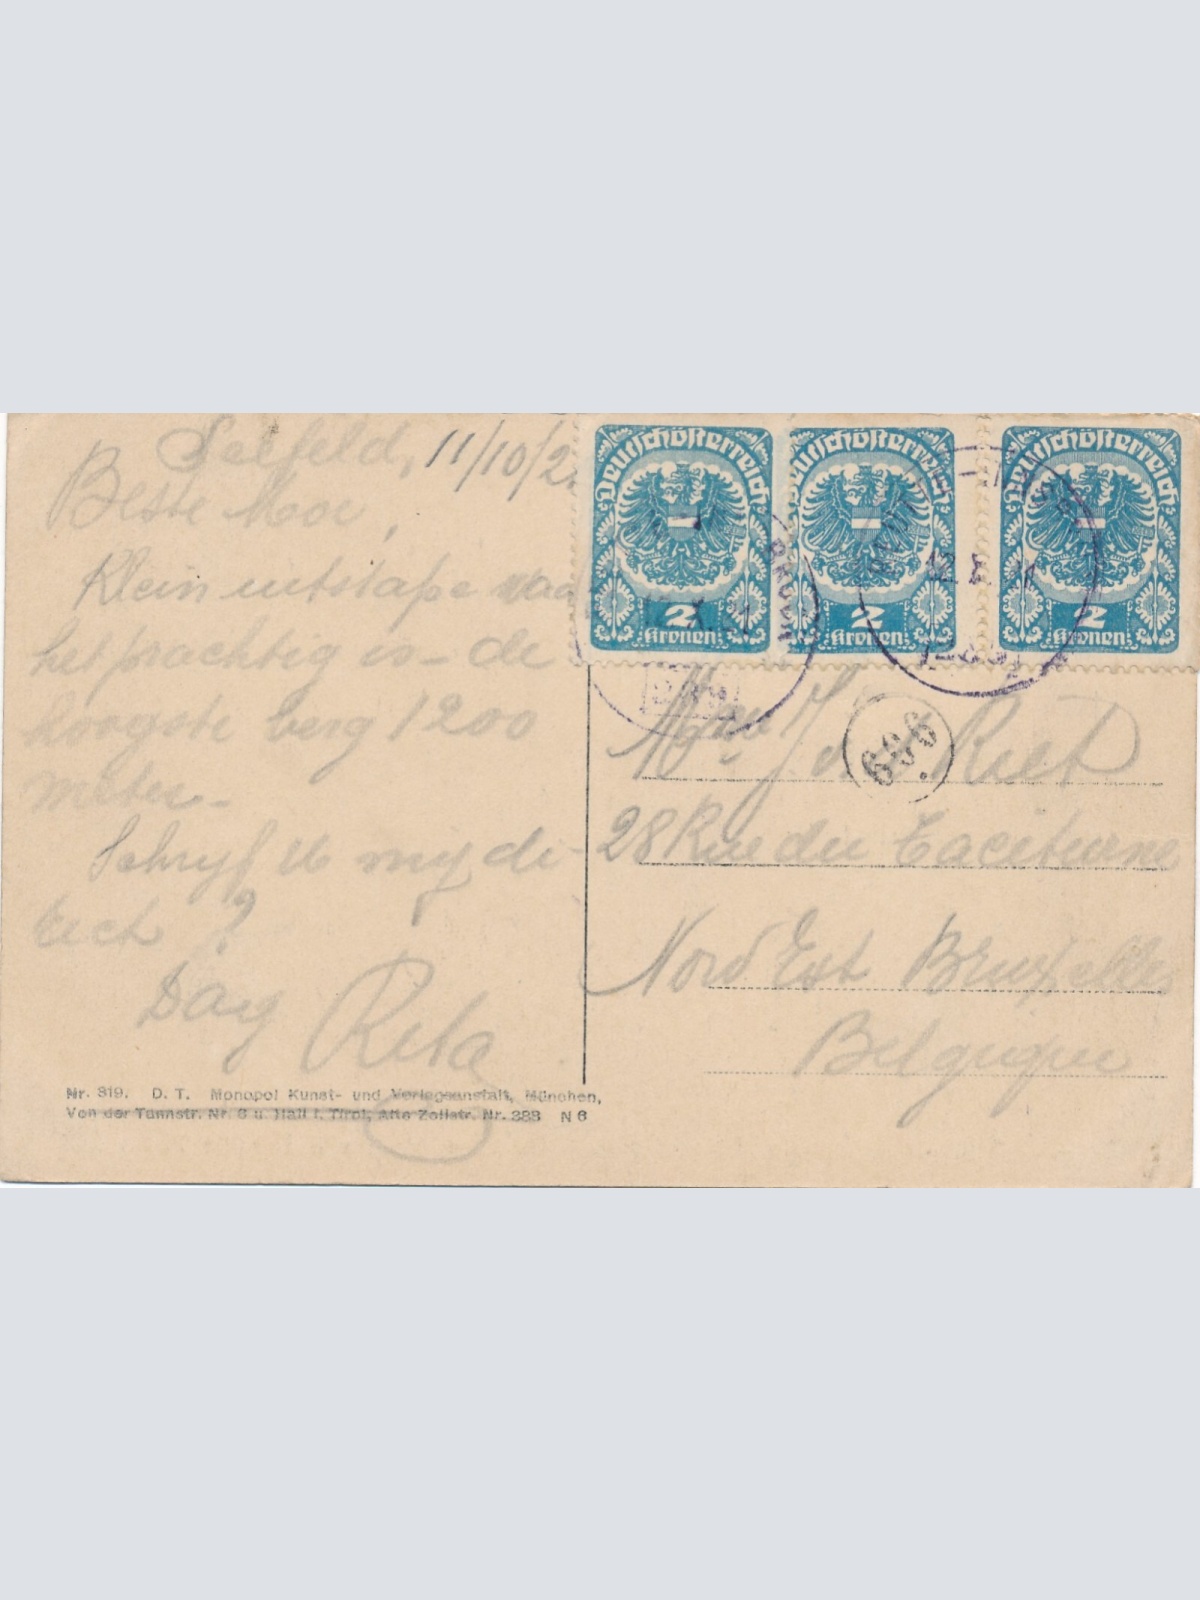 Seefeld, 11/10/2
Beste Moe,
Klein uitstapje waar
het prachtig is – de
hoogste berg 1200
meter –
Schryf U my di-
kech ?
Dag Rita
Nr. 319. D. T. Monopol Kunst- und Verlagsanstalt, München,
Von der Tannstr. Nr. 6 u. Hall i. Tirol, alte Zollstr. Nr. 388 N 6
Deutschösterreich
2
Kronen
Deutschösterreich
2
Kronen
Deutschösterreich
2
Kronen
12 X 21
696
Riet
28 Rue du Taciturne
Nord Est Bruxelles
Belgique